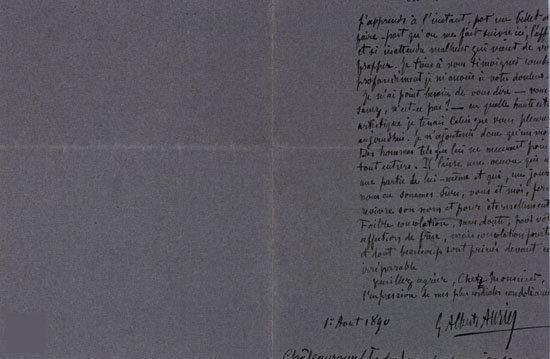 J'apprends à l'instant, par un billet de
faire-part qu'on me fait suivre ici, l'aff
et si inattendu malheur qui vient de vo
frapper. Je tiens à vous témoigner comb
profondément je m'associe à votre douleur.
Je n'ai point besoin de vous dire — vous
savez, n'est-ce pas ? — en quelle haute est
artistique je tenais Celui que vous pleurez
aujourdhui. Je n'ajouterai donc qu'un mot
Des hommes tels que lui ne meurent point
tout entiers. Il laisse une œuvre qui e
une partie de lui-même et qui, un jour
nous en sommes sûrs, vous et moi, fera
revivre son nom et pour éternellement
Faible consolation, sans doute, pour vot
affection de frère, mais consolation pourta
et dont beaucoup sont privés devant c
irréparable
Veuillez agréer, Cher Monsieur,
l'impression de mes plus cordiales condoléances
1er Aout 1890
G Albert Aurier